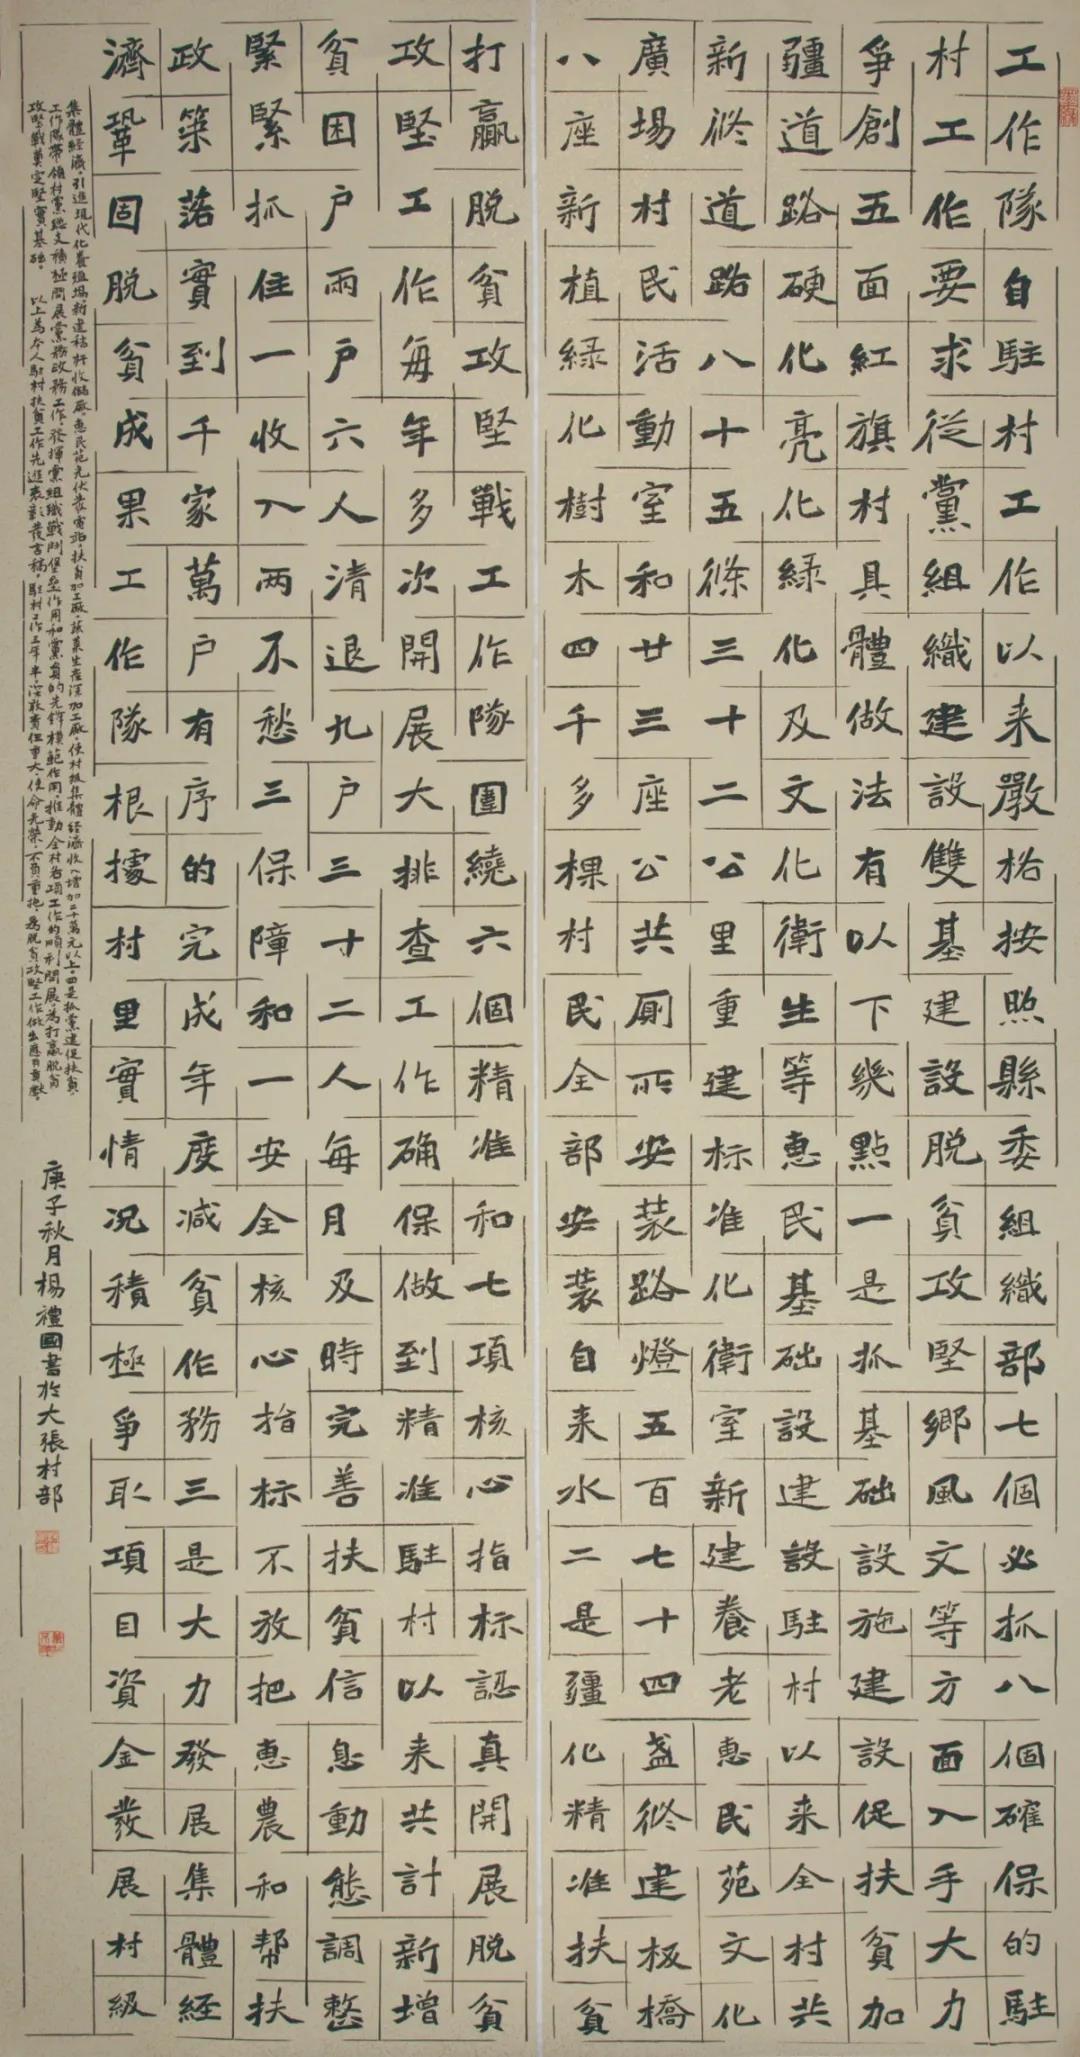 工作隊自駐村工作以来嚴格按照縣委組織部七個必抓八個確保的駐
村工作要求從黨組織建設雙基建設脱貧攻堅鄉風文等方面入手大力
爭創五面紅旗村具體做法有以下幾點一是抓基础設施建設促扶貧加
疆道路硬化亮化綠化及文化衛生等惠民基础設建設駐村以来全村共
新修道路八十五條三十二公里重建标准化衛室新建養老惠民苑文化
廣場村民活動室和廿三座公共厕所安装路燈五百七十四盏修建板橋
八座新植綠化樹木四千多棵村民全部安装自来水二是疆化精准扶貧
打贏脱貧攻堅戰工作隊圍繞六個精准和七項核心指标認真開展脱貧
攻堅工作每年多次開展大排查工作确保做到精准駐村以来共計新增
貧困户兩户六人清退九户三十二人每月及時完善扶貧信息動態調整
緊緊抓住一收入兩不愁三保障和一安全核心指标不放把惠農和帮扶
政策落實到千家萬户有序的完成年度减貧作務三是大力發展集體經
濟鞏固脱貧成果工作隊根據村里實情况積極爭取項目資金發展村級
集體經濟引進現代化養殖場新建秸秆收儲廠惠民苑光伏發電站扶貧加工廠蔬菜生産深加工廠使村级集體經濟收入增加二十萬元以上四是抓黨建促扶貧
工作隊帶領村黨總支積極開展黨務政務工作發揮黨組織戰鬥堡垒作用和黨員的先鋒模範作用推動全村各項工作的順利開展為打贏脱貧
攻堅戰奠定堅實基础 以上為本人駐村扶貧工作先進表彰發言稿駐村工作三年半深感責任重大使命光榮不負重托為脱貧攻堅工作做出應有貢獻
庚子秋月楊禮國書於大張村部